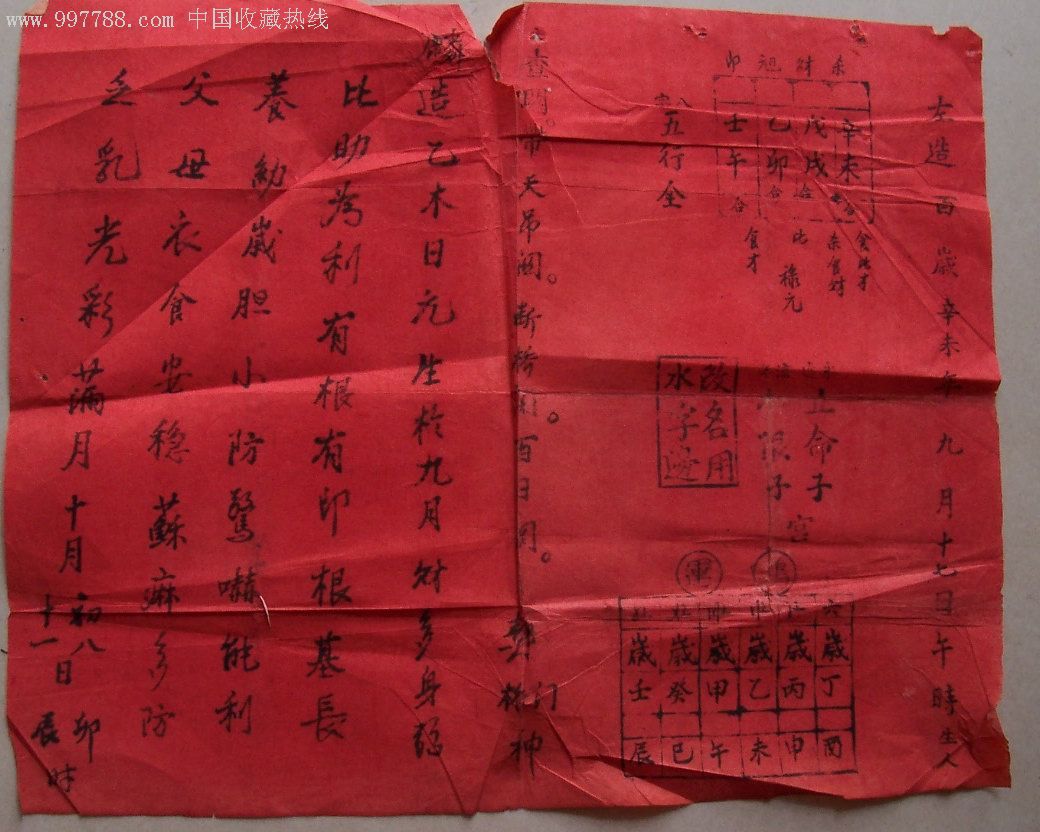 www.997788.com 中国收藏热线
左造百歲辛未年九月十七日午時生人
財 印
辛未
戊戌
乙卯
壬午
合
合
合
食才
祿元
五行全
改名用
水字边
上命子宮
限子
運
歲 歲 歲 歲 歲 歲
丁 丙 乙 甲 癸 壬
酉 申 未 午 巳 辰
天吊関。断橋関。百日関。
门
神
造乙木日元生於九月財多身弱
比助為利有根有印根基長
養幼歲胆小防驚嚇能利
父母衣食安穩蘇麻多防
乏乳光彩满月十月初八卯
十一日辰時